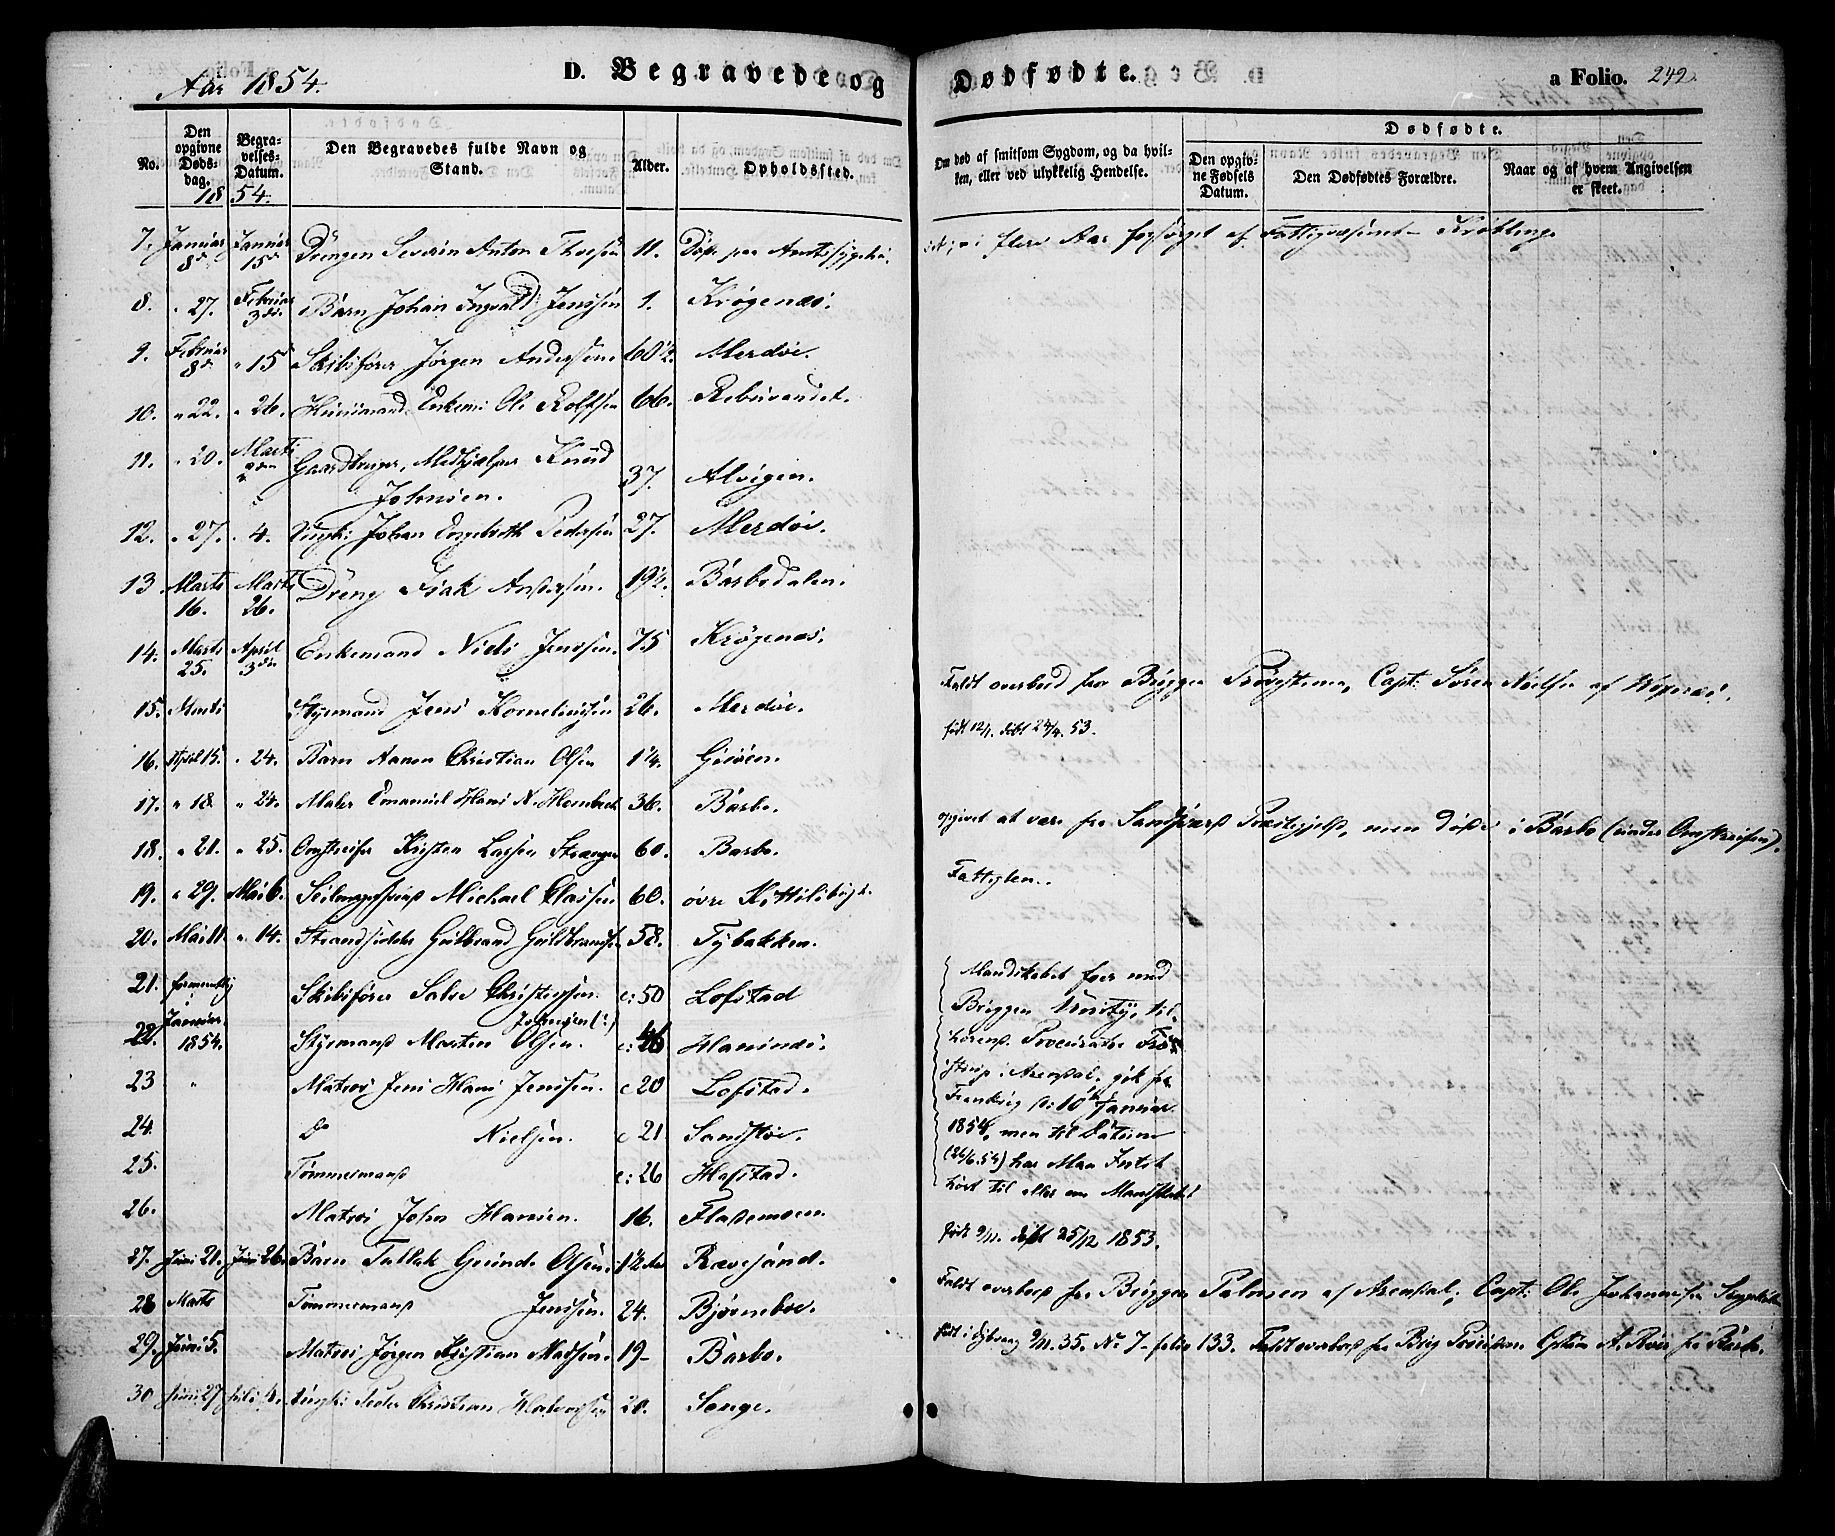 Aar 1854.
D. Begravede og Dødfødte.
a Folio. 242.
No.
Den opgivne Dødsdag.
Begravelses-Datum.
1854.
Den Begravedes fulde Navn og Stand.
Alder.
Opholdssted.
Om død af smitsom Sygdom, og da hvilken, eller ved ulykkelig Hendelse.
Dødfødte.
Den opgivne Fødsels Datum.
Den Dødfødtes Forældre.
Naar og af hvem Angivelsen er skeet.
7. Januar 8de Januar 15de Drengen Severin Anton 11. paa i flere Aar forsørget af Fattigvæsenet
8. " 27. Februar 3die Barn Johan Ingvald Jenssen 1. Krøgenæs.
9. Februar 8de " 15de Skibsfører Jørgen Andersen 60½. Merdøe.
10. " 22. " 26. Huusmand, Enkem: Ole Rolfsen 66. Rebuvandet.
11. " 20. Marts Gaardbruger, Medhjælper Knud
Johnsen. 37. Alvigen.
12. " 27. " 4. Ungk: Johan Engebreth Pedersen 27. Merdøe.
13 Marts 16. Marts 26. Dreng Isak Andersen. 19½. Barbodalen.
14. Marts 25. April 3die Enkemand Niels Jenssen. 75 Krøgenæs.
15. Marts Styrmand Jens Korneliussen 26. Merdøe. Faldt overbord fra Briggen Prøvestenen, Capt: Søren Nielsen af
16. April 15. " 24. Barn Aanon Christian Olsen 1¼. født 12/1. døbt 24/4. 53.
17. " 18 " 24. Maler Emanuel Hans N. Hornbech 36. Barbo.
18. " 21. " 25. Omstreifer Kristen Larsen Stranger 60. Barbo. opgivet at være fra Præstegjeld, men døde i Barbo (under Omstreifen).
19. " 29. Mai 6. Michael Classen 60. øvre Fattiglem.
20. Mai 11 " 14. Strandsidder Gulbrand Guldbrandsen 58. Tybakken.
21. formentlig i Januar 1854. Skibsfører Salve Christensen. c: 50 Lofstad
22. Styrmand Morten Olsen. Johnsen(?) c: 46
23 " Matros Jens Hans Jenssen. c 20 Lofstad.
24. Do Nielsen. c 21 Sandstøe.
25. Tømmermand c: 26 Hafstad.
26. Matros John Hansen. 16. Fladsmoen.
Mandskabet foer med
Briggen til-
hørende
i Arendal, gik fra
10de Januar
1854, men til Datum
(26/6.54) har Man Intet
hørt til eller om Mandskabet
27. Juni 21. Juni 26. Barn Tallak Gunde Olsen 1½ Aar Rævesand. født 9/11. døbt 25/12 1853.
28 Marts Tømmermand Jenssen. 24. Bjørneboe. Faldt overbord fra Briggen af Arendal; Capt: Ole Johannesen
29. Juni 5. Matros Jørgen Kristian Madsen. 19- Barbo. født i 9/11. 35. No 7 - folio 133. Faldt overbord fra Brig A. fra Barbo.
30 Juni 27 Juli Ungk: Peder Christian Halvorsen 20. Songe.